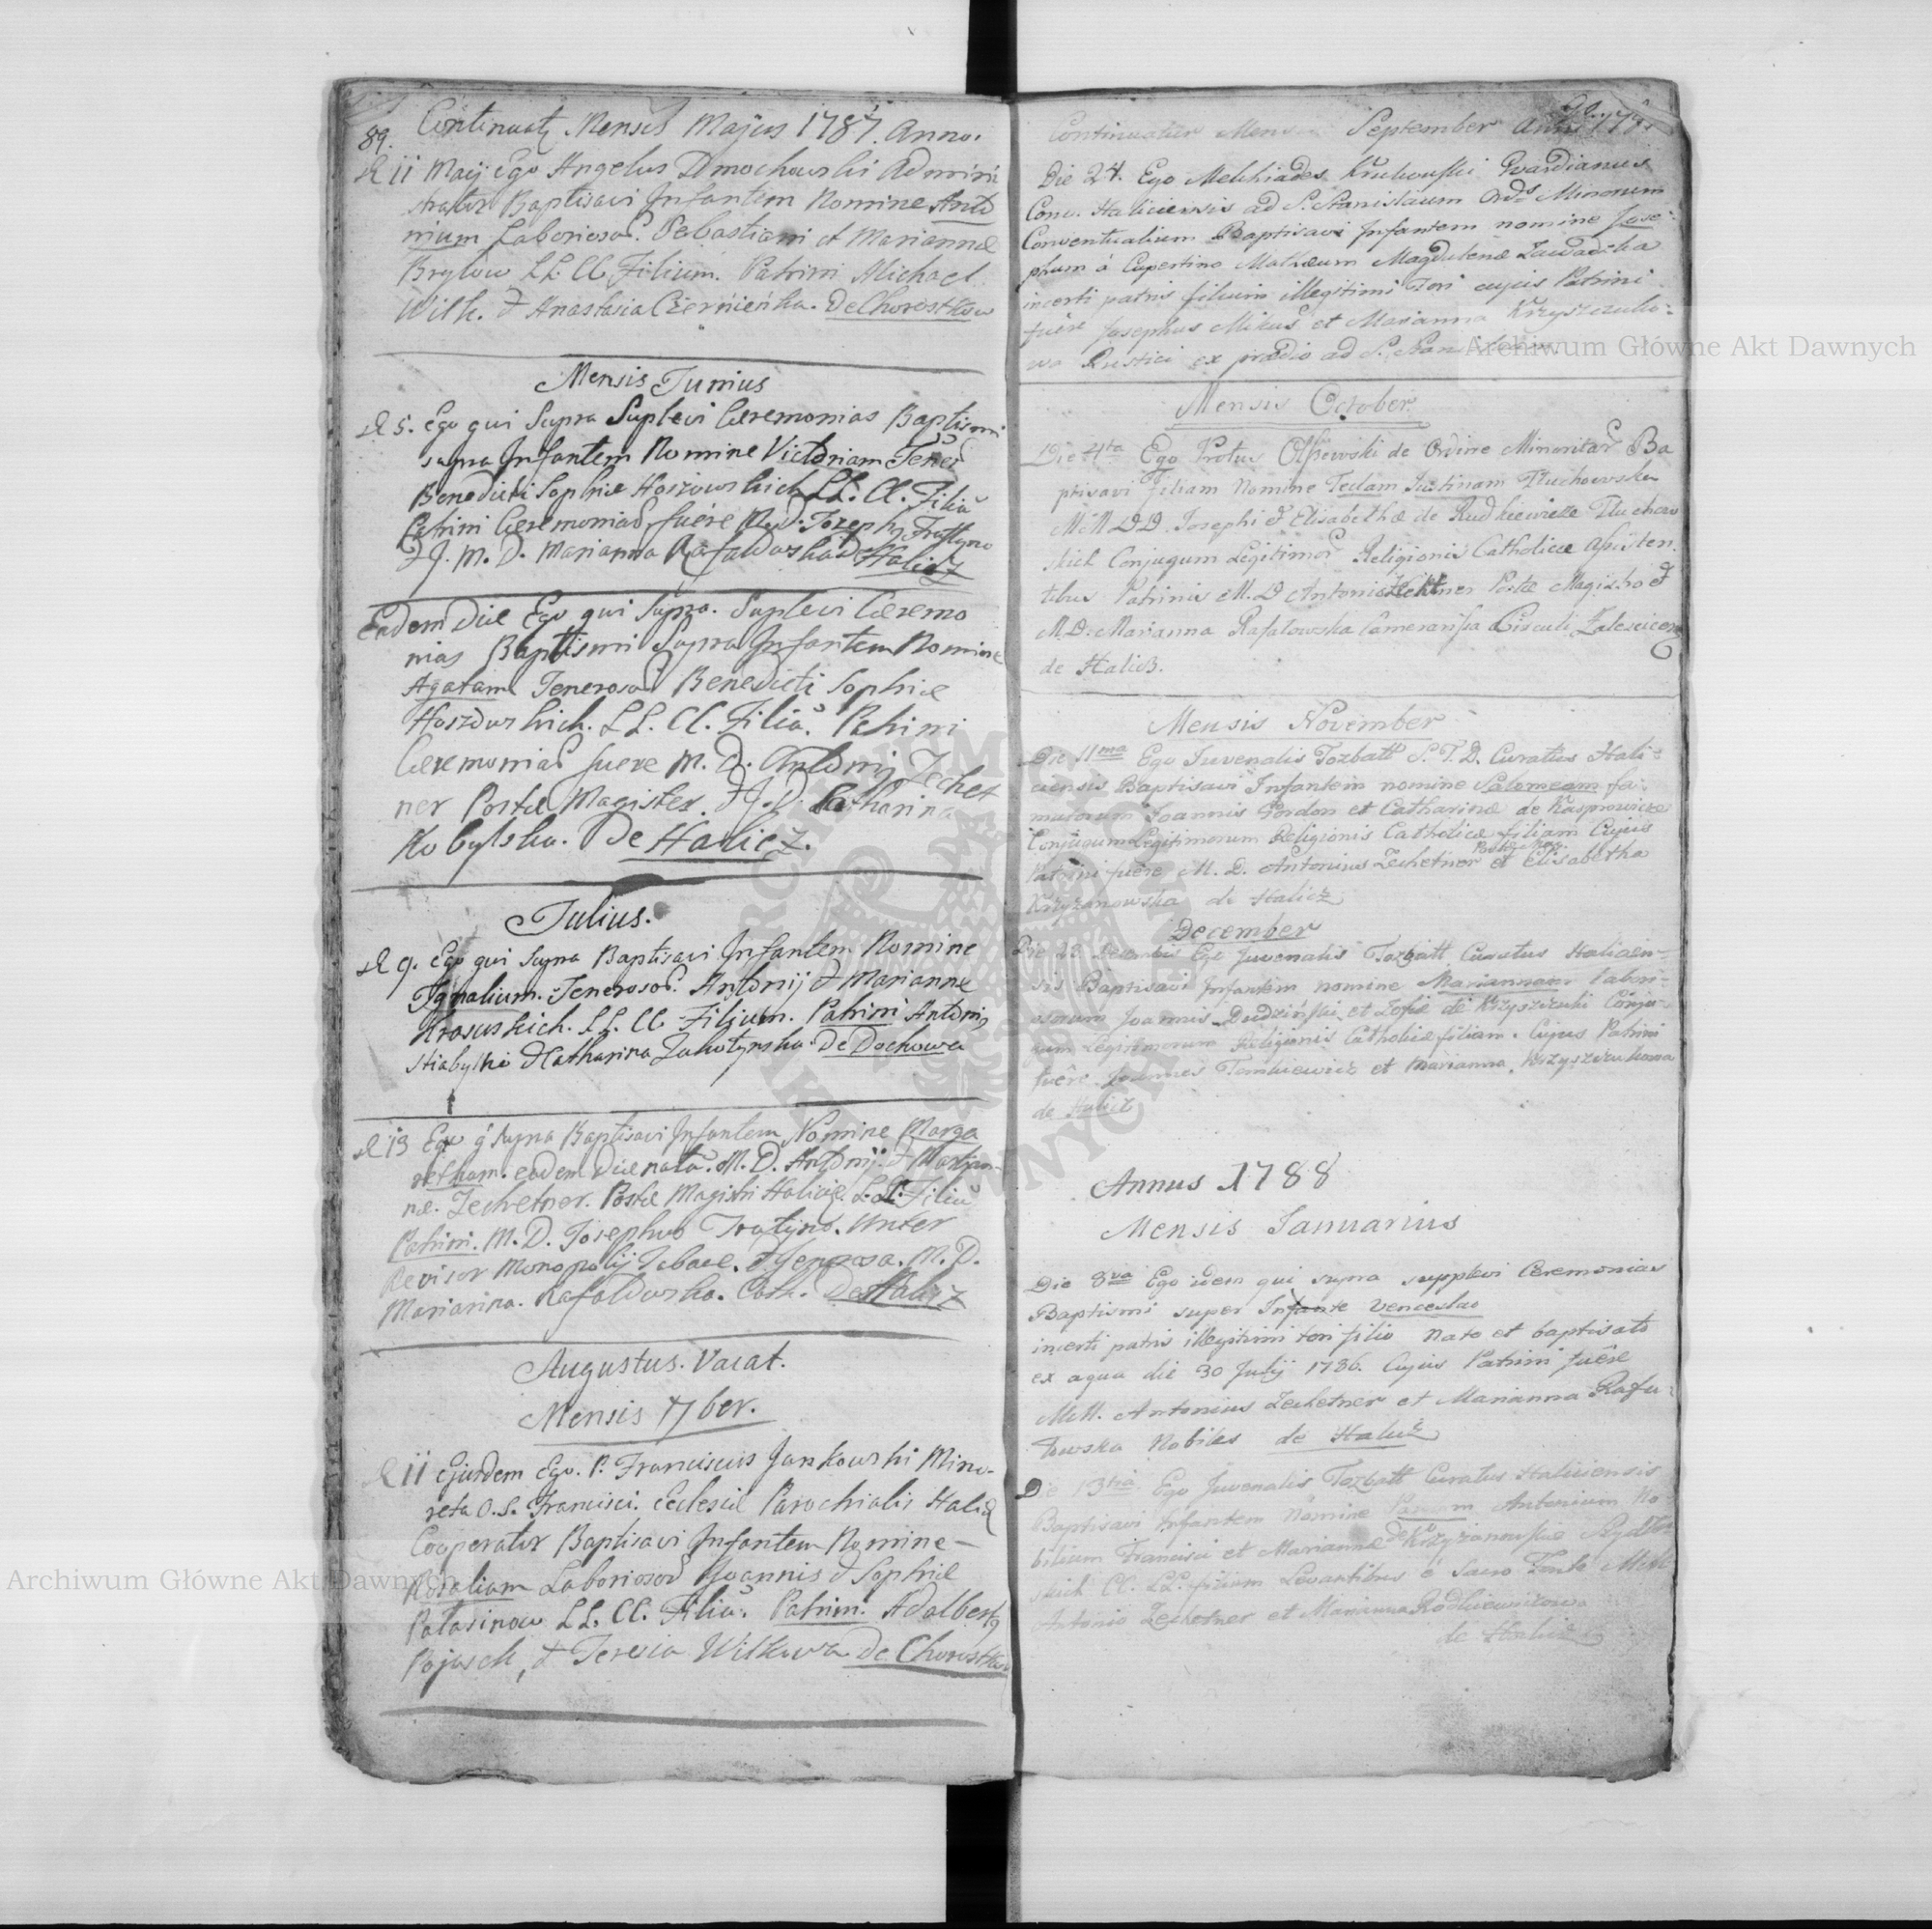 89. Continuatq Mensis Majus 1787. Anno.
D. 11 Maij Ego Angelus Dmochowski Admini
strator Baptisavi Infantem Nomine Anto
nium Laboriosor. Sebastiani et Mariannæ
Brylow LL. CC. Filium. Patrini Michael
Wilk. & Anastasia Czernieńka. De Chorostkow
Mensis Junius
D 5. Ego qui Supra Suplevi Cæremonias Baptismi
supra Infantem Nomine Victoriam Gener
Benedicti Sophiæ Hoszowskich LL. CC. Filiā
Patrini Cæremoniar fuére M. D. Joseph
& J. M. D. Marianna Rafałowska de Halicz
Eadem Die Ego qui Supra. Suplevi Cæremo
nias Baptismi Supra Infantem Nomine
Agatam Generosor Benedicti Sophiæ
Hoszowskich. LL. CC. Filiā. Patrini
Cæremoniar fuere M. D. Antonij Zechet
ner Postæ Magister. & J. D. Catharina
Kobylska. De Halicz.
Julius.
D 9. Ego qui Supra Baptisavi Infantem Nomine
Ignatium. Generosor. Antonij & Mariannæ
Krasuskich. LL. CC Filium. Patrini Antoni
& Catharina De Dochowa
D 13 Ego q Supra Baptisavi Infantem Nomine Marga
retham. eadem Die natā. M. D. Antonij. & Marjan-
næ. Zechetner. Postæ Magistri Haliciæ. L. L. Filiā
Patrini. M. D. Josephus Unter
Revisor Monopolij Tabacc. & Generosa. M. D.
Marianna. Rafałowska. Cath. De Halicz
Augustus. Vacat.
Mensis 7ber.
D 11 Ejusdem Ego. P. Franciscus Jankowski Mino-
reta O. S. Francisci. Ecclesiæ Parochialis Halic
Cooperator Baptisavi Infantem Nomine –
Rosaliam Laboriosor Joannis & Sophiæ
Patasinow LL. CC. Filiā. Patrini. Adalbert9
Pojasek, & Teresia Wilkowa De Chorostkow
Continuatur Mensis September Anni
Die 24. Ego Melchiades Krukowski Gvardianus
Conv. Haliciensis ad S. Stanislaum Ords Minorum
Conventualium Baptisavi Infantem nomine Jose=
phum á Cupertino Mathæum Magdalenæ Zawadzka
incerti patris filium illegitimi Tori cujus Patrini
fuére Josephus Mikuś et Marianna Krzyszczuko=
wa Rustici ex prædio ad S. Stan
Mensis October.
Die 4ta Ego Protus Olszewski de Ordine Minoritar Ba
ptisavi Filiam Nomine Teclam Justinam Tluchowska
MM DD. Josephi & Elisabethæ de Rudkiewicze Tluchow
skich Conjugum Legitimor Religionis Catholicæ Assisten.
tibus Patrinis M. D Antonio Zechtner Postæ Magistro &
M. D. Marianna Rafałowska Camerarissa Circuli Zalescicen
de Halicz.
Mensis November
Die 11ma Ego Juvenalis Tozbatt S. T. D. Curatus Hali=
ciensis Baptisavi Infantem nomine Salomeam fa=
mulorum Joannis Gordon et Catharinæ de Kasprowicze
Conjugum Legitimorum Religionis Catholicæ filiam Cujus
Patrini fuére M. D. Antonius Zechetner Postæ Mag: et Elisabetha
Krzyżanowska de Halicz
December
Die 28 Decembris Ego Juvenalis Tozbatt Curatus Halicien=
sis Baptisavi Infantem nomine Mariannam labori=
osorum Joannis Dudziński et Zofiæ de Krzyszczuki Conju=
gum Legitimorum Religionis Catholicæ filiam. Cujus Patrini
fuére Joannes Tomkiewicz et Marianna Krzyszczukowa
de Halicz
Annus 1788
Mensis Januarius
Die 3va Ego idem qui supra supplevi Ceremonias
Baptismi super Infante Venceslao
incerti patris illegitimi tori filio nato et baptisato
ex aqua die 30 Julij 1786. Cujus Patrini fuêre
MM. Antonius Zechetner et Marianna Rafa=
łowska Nobiles de Halicz
Die 13tia Ego Juvenalis Tozbatt Curatus Haliciensis
Baptisavi Infantem Nomine Antonium No
bilium Francisci et Mariannæ de Krzyżanowskie
skich CC. LL. filium Levantibus é Sacro Fonte MM
Antonio Zechetner et Marianna Rodkiewiczowa
de Halicz
Archiwum Główne Akt Dawnych
Archiwum Główne Akt Dawnych